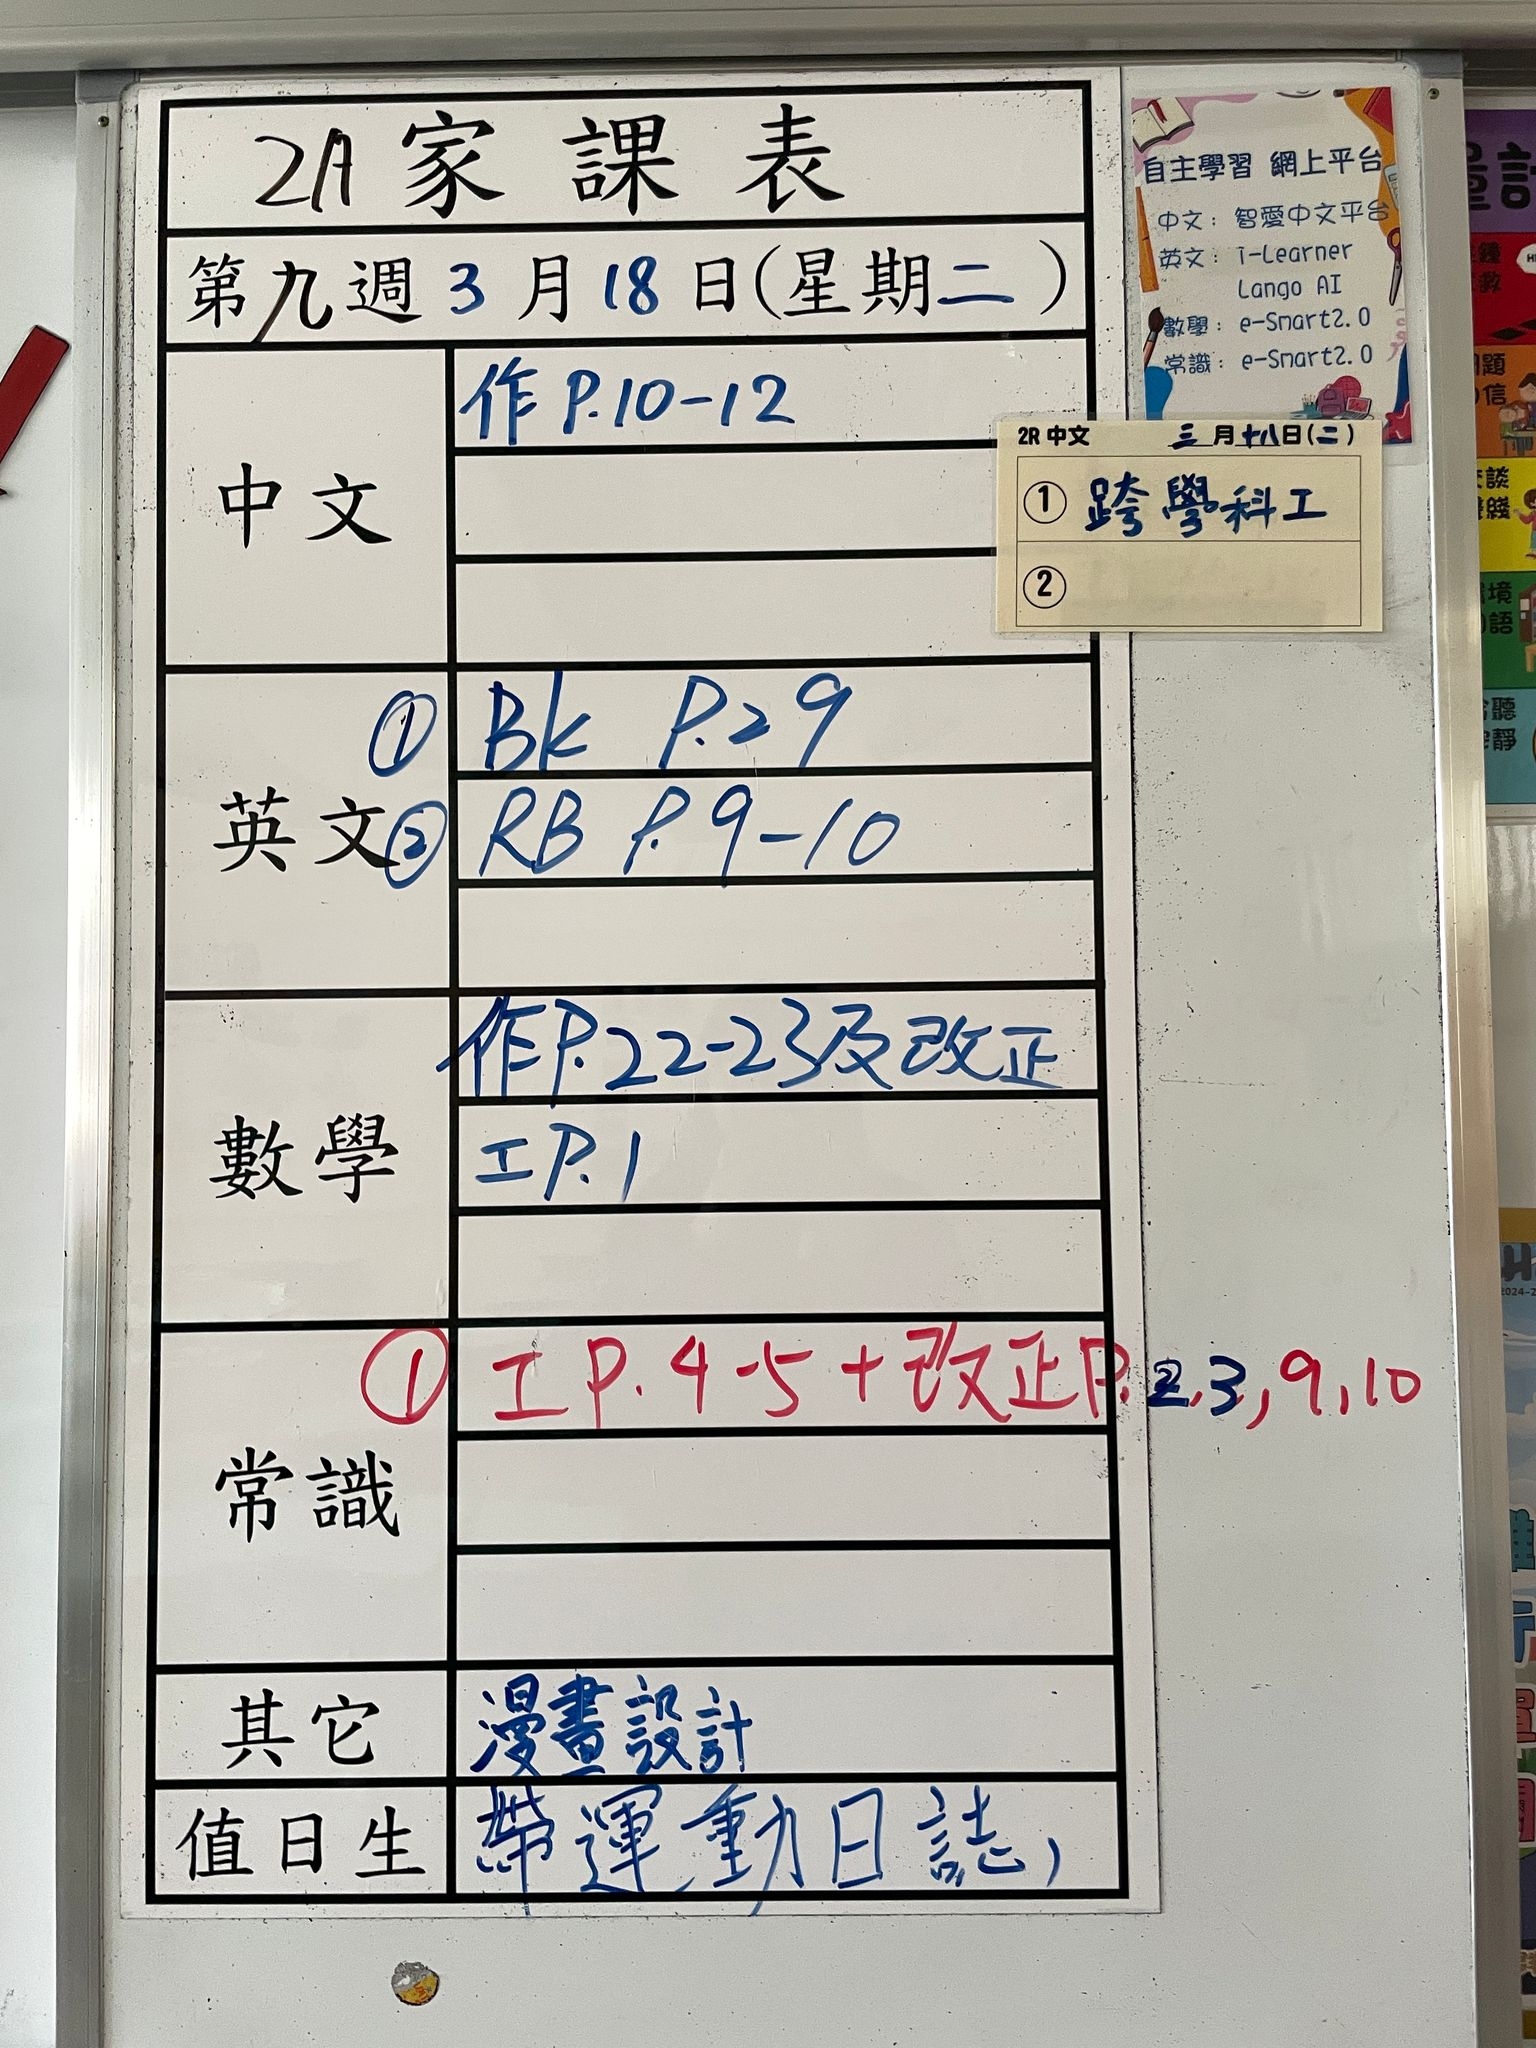 2A 家課表
第九週 3月18日(星期二)
中文
作 P.10-12
英文
① Bk P.29
② RB P.9-10
數學
作P.22-23及改正
工P.1
常識
① 工P.4-5+改正P.2,3,9,10
其它
漫畫設計
值日生
帶運動日誌,
自主學習 網上平台
中文：智愛中文平台
英文：i-Learner
Lango AI
數學：e-Smart2.0
常識：e-Smart2.0
2R 中文 三月十八日(二)
① 跨學科工
②